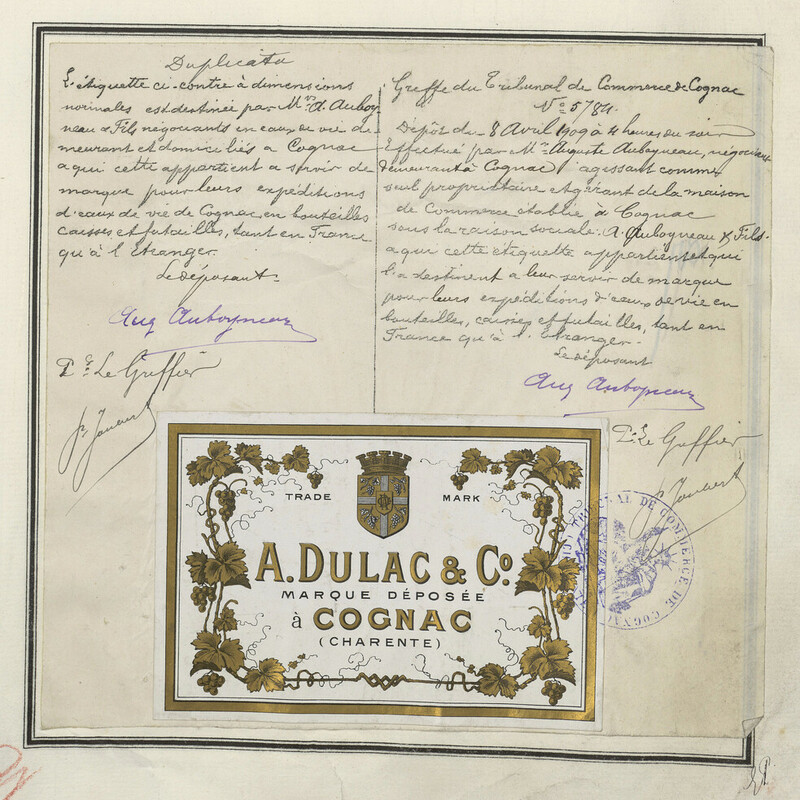 Duplicata
L'étiquette ci-contre à dimensions
normales est destinée par Mrs A. Auboy-
neau & Fils négociants en eaux de vie de-
meurant et domiciliés à Cognac
a qui cette appartient a servir de
marque pour leurs expéditions
d'eaux de vie de Cognac, en bouteilles
caisses et futailles, tant en France
qu'à l'Etranger.
Le déposant
Aug Auboyneau
Pr. Le Greffier
Greffe du Tribunal de Commerce de Cognac
No 5784.
Dépôt du 8 Avril 1909 à 4 heures du soir
Effectué par Mr Auguste Auboyneau, négociant
demeurant à Cognac, agissant comme
seul propriétaire et gérant de la maison
de Commerce établie à Cognac
sous la raison sociale: A. Auboyneau & Fils.
a qui cette étiquette appartient et qui
la destinent a leur servir de marque
pour leurs expéditions d'eaux de vie en
bouteilles, caisses et futailles, tant en
France qu'à l'Etranger.
Le déposant
Aug Auboyneau
Pr. Le Greffier
TRADE MARK
A. DULAC & Co.
MARQUE DÉPOSÉE
à COGNAC
(CHARENTE)
TRIBUNAL DE COMMERCE DE COGNAC